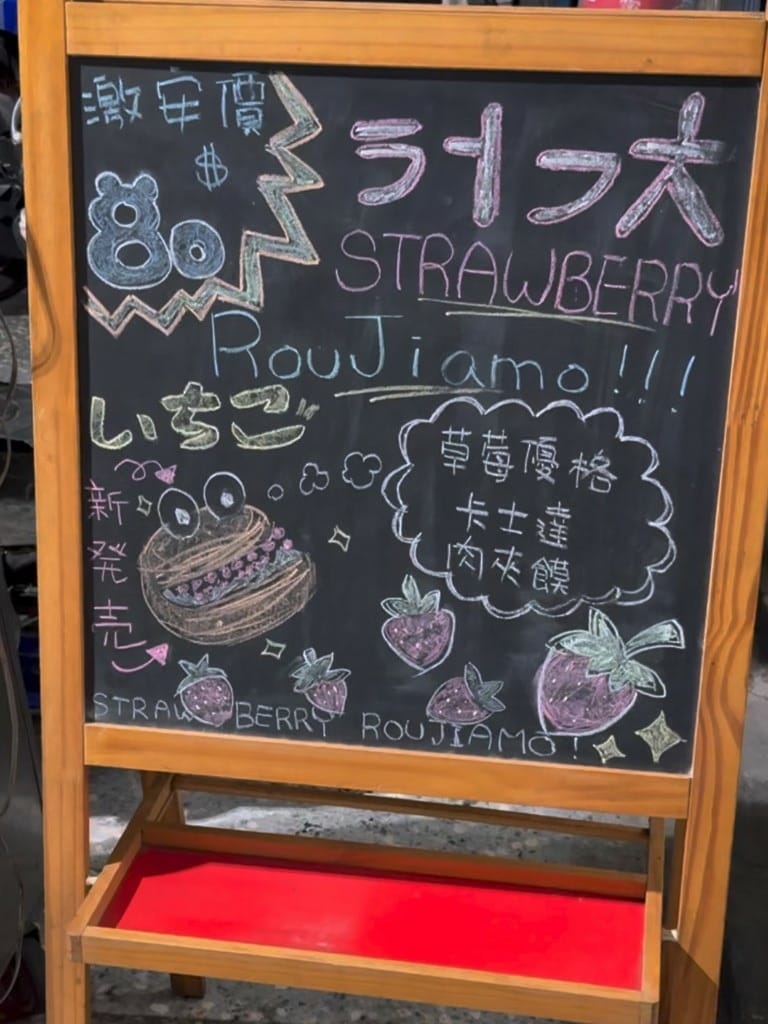 激安價
$
80
STRAWBERRY
RouJiamo!!!
いちご
草莓優格
卡士達
肉夾饃
新発売
STRAWBERRY ROUJIAMO!